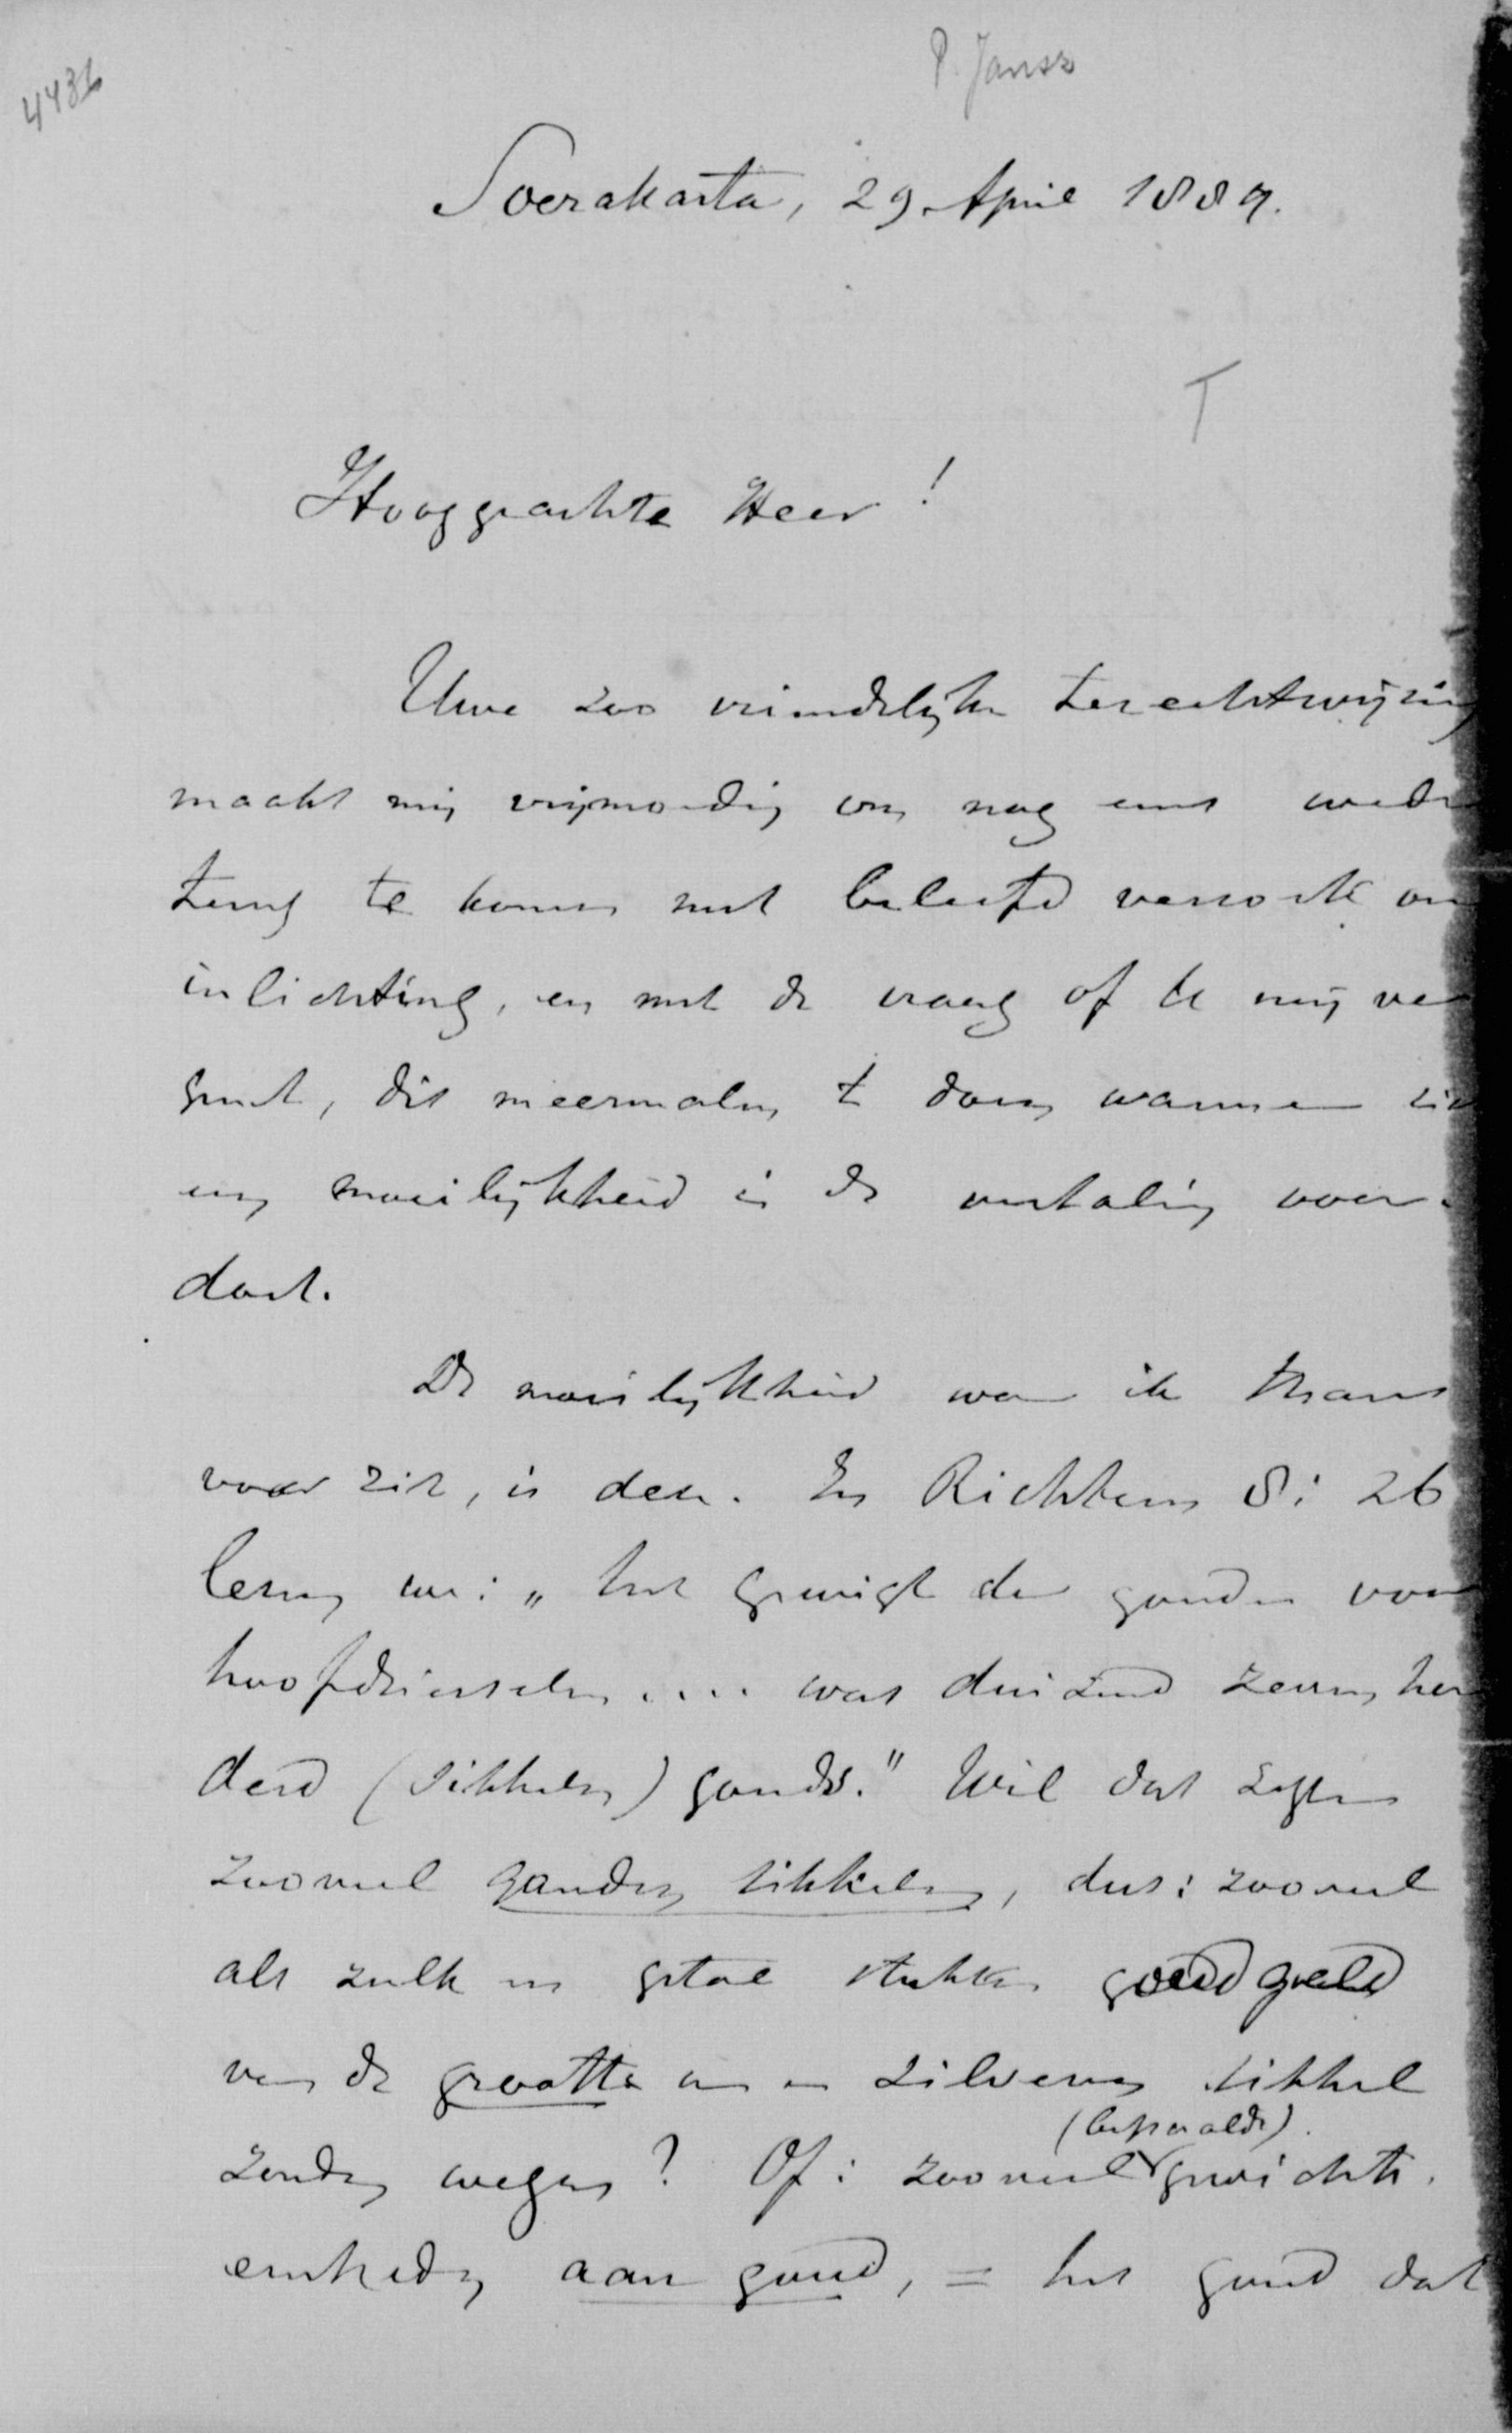 P. Jansz
4436
Soerakarta, 29 April 1889.
T
Hooggeachte Heer!
Uwe zoo vriendelijke terechtwijzing
maakt mij vrijmoedig om nog eens weder
terug te komen met beleefd verzoek om
inlichting, en met de vraag of U mij ver
gunt, dit meermalen te doen wanneer zich
eenig moeilijkheid in de vertaling voor-
doet.
De moeilijkheid waar ik thans
voor zit, is deze. In Richteren 8: 26
lezen we: „het gewigt der gouden voor
hoofdsierselen .... was duizend zeven hon
derd (sikkelen) gouds." Wil dat zeggen
zooveel gouden sikkelen, dus: zooveel
als zulk een getal stukken goud geld
van de grootte van een zilveren sikkel
(bepaalde).
zouden wegen? Of: zooveel gewichts.
eenheden aan goud, = het goud dat